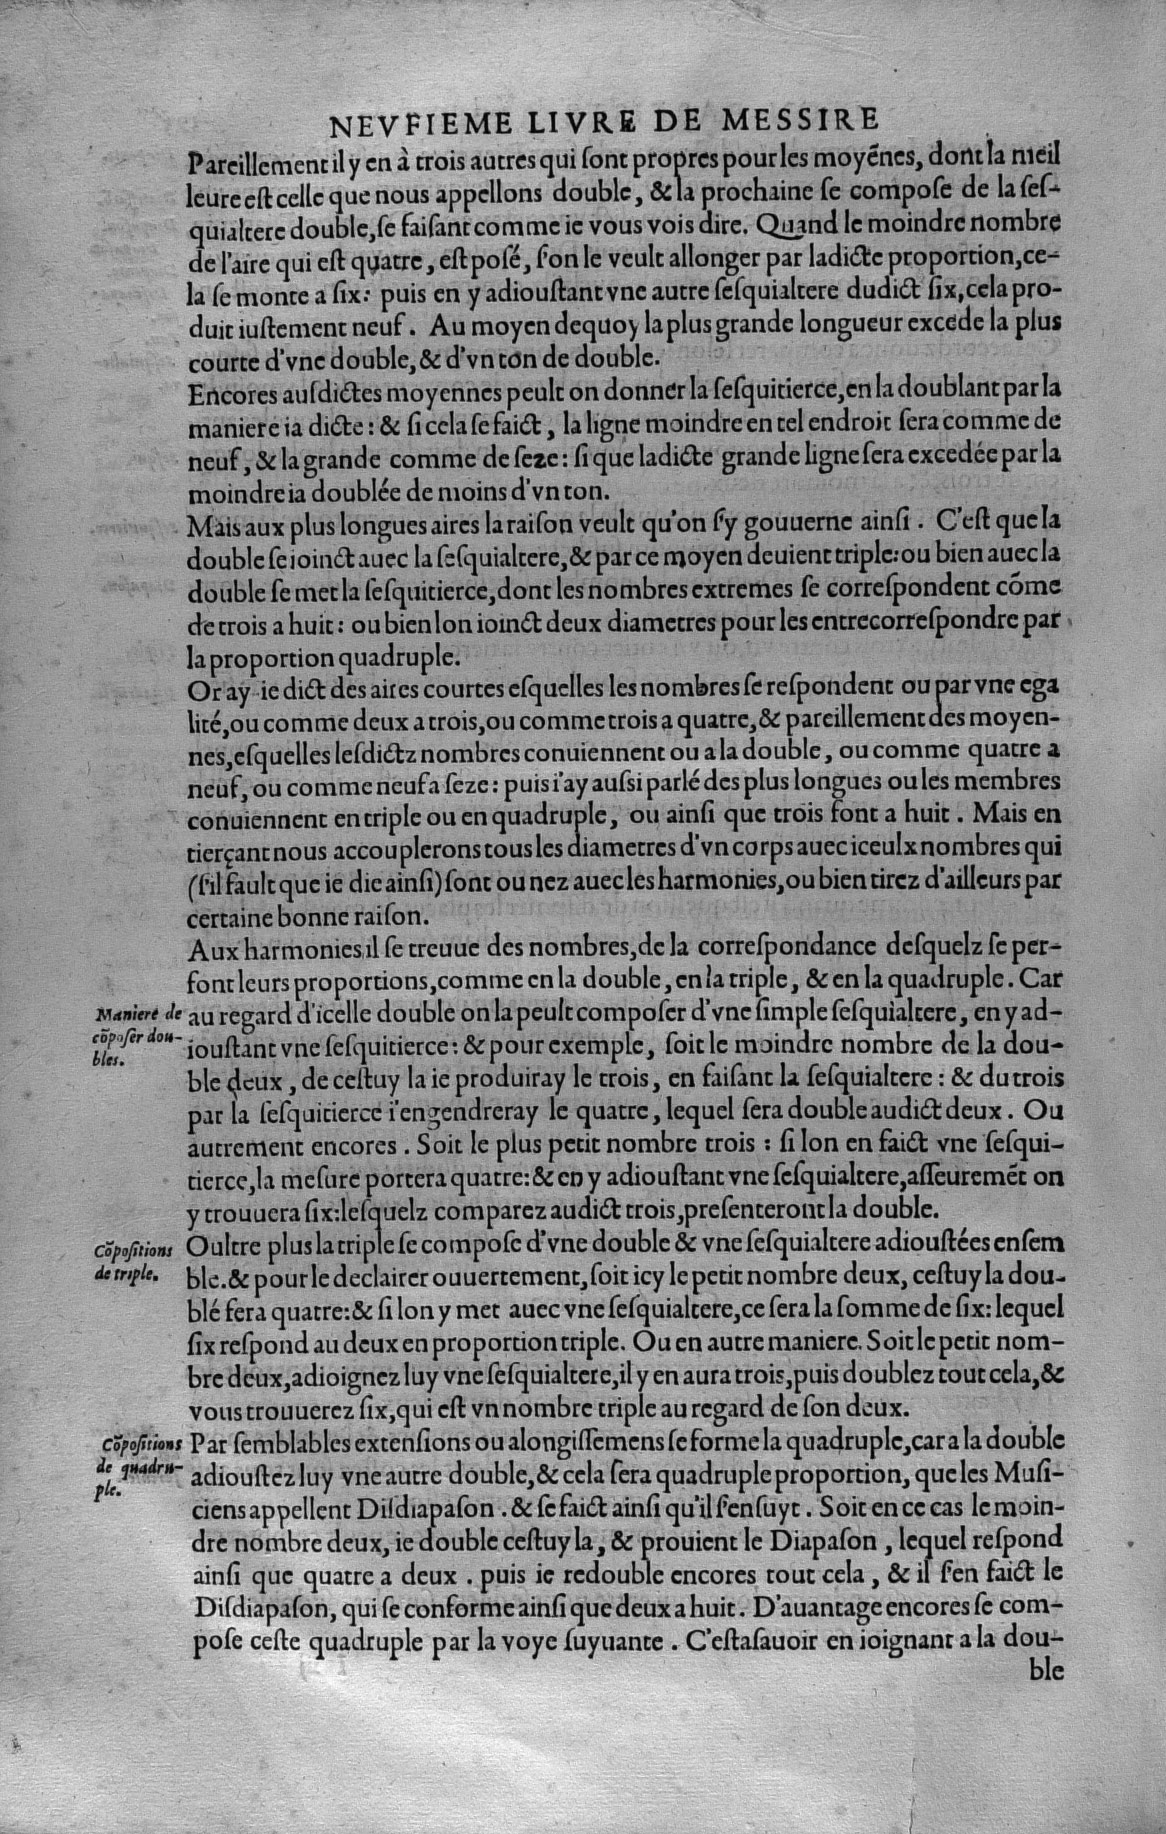 NEVFIEME LIVRE DE MESSIRE
Pareillement il y en à trois autres qui ſont propres pour les moyẽnes, dont la meil
leure est celle que nous appellons double, & la prochaine se compoſe de la ſeſ-
quialtere double, ſe faiſant comme ie vous vois dire. Quand le moindre nombre
de l'aire qui eſt quatre, eſt poſé, ſ'on le veult allonger par ladicte proportion, ce-
la ſe monte a ſix: puis en y adiouſtant vne autre ſeſquialtere dudict ſix, cela pro-
duit iuſtement neuf. Au moyen dequoy la plus grande longueur excede la plus
courte d'vne double, & d'vn ton de double.
Encores auſdictes moyennes peult on donner la ſeſquitierce, en la doublant par la
maniere ia dicte: & ſi cela ſe faict, la ligne moindre en tel endroit ſera comme de
neuf, & la grande comme de ſeze: ſi que ladicte grande ligne ſera excedée par la
moindre ia doublée de moins d'vn ton.
Mais aux plus longues aires la raiſon veult qu'on ſ'y gouuerne ainſi. C'eſt que la
double ſe ioinct auec la ſeſquialtere, & par ce moyen deuient triple: ou bien auec la
double ſe met la ſeſquitierce, dont les nombres extremes ſe correſpondent cõme
de trois a huit: ou bien lon ioinct deux diametres pour les entrecorreſpondre par
la proportion quadruple.
Or ay-ie dict des aires courtes eſquelles les nombres ſe reſpondent ou par vne ega
lité, ou comme deux a trois, ou comme trois a quatre, & pareillement des moyen-
nes, eſquelles leſdictz nombres conuiennent ou a la double, ou comme quatre a
neuf, ou comme neuf a ſeze: puis i'ay auſsi parlé des plus longues ou les membres
conuiennent en triple ou en quadruple, ou ainſi que trois font a huit. Mais en
tierçant nous accouplerons tous les diametres d'vn corps auec iceulx nombres qui
(ſ'il fault que ie die ainſi) ſont ou nez auec les harmonies, ou bien tirez d'ailleurs par
certaine bonne raiſon.
Aux harmonies il ſe treuue des nombres, de la correſpondance deſquelz ſe per-
font leurs proportions, comme en la double, en la triple, & en la quadruple. Car
Maniere de
cõpoſer dou-
bles.
au regard d'icelle double on la peult compoſer d'vne ſimple ſeſquialtere, en y ad-
iouſtant vne ſeſquitierce: & pour exemple, ſoit le moindre nombre de la dou-
ble deux, de ceſtuy la ie produiray le trois, en faiſant la ſeſquialtere: & du trois
par la ſeſquitierce i'engendreray le quatre, lequel ſera double audict deux. Ou
autrement encores. Soit le plus petit nombre trois: ſi lon en faict vne ſeſqui-
tierce, la meſure portera quatre: & en y adiouſtant vne ſeſquialtere, aſſeuremẽt on
y trouuera ſix: leſquelz comparez audict trois, preſenteront la double.
Cõpoſitions
de triple.
Oultre plus la triple ſe compoſe d'vne double & vne ſeſquialtere adiouſtées enſem
ble. & pour le declairer ouuertement, ſoit icy le petit nombre deux, ceſtuy la dou-
blé fera quatre: & ſi lon y met auec vne ſeſquialtere, ce ſera la ſomme de ſix: lequel
ſix reſpond au deux en proportion triple. Ou en autre maniere. Soit le petit nom-
bre deux, adioignez luy vne ſeſquialtere, il y en aura trois, puis doublez tout cela, &
vous trouuerez ſix, qui eſt vn nombre triple au regard de ſon deux.
Cõpoſitions
de quadru-
ple.
Par ſemblables extenſions ou alongiſſemens ſe forme la quadruple, car a la double
adiouſtez luy vne autre double, & cela ſera quadruple proportion, que les Muſi-
ciens appellent Diſdiapaſon. & ſe faict ainſi qu'il ſ'enſuyt. Soit en ce cas le moin-
dre nombre deux, ie double ceſtuy la, & prouient le Diapaſon, lequel reſpond
ainſi que quatre a deux. puis ie redouble encores tout cela, & il ſ'en faict le
Diſdiapaſon, qui ſe conforme ainſi que deux a huit. D'auantage encores ſe com-
poſe ceſte quadruple par la voye ſuyuante. C'eſtaſauoir en ioignant a la dou-
ble